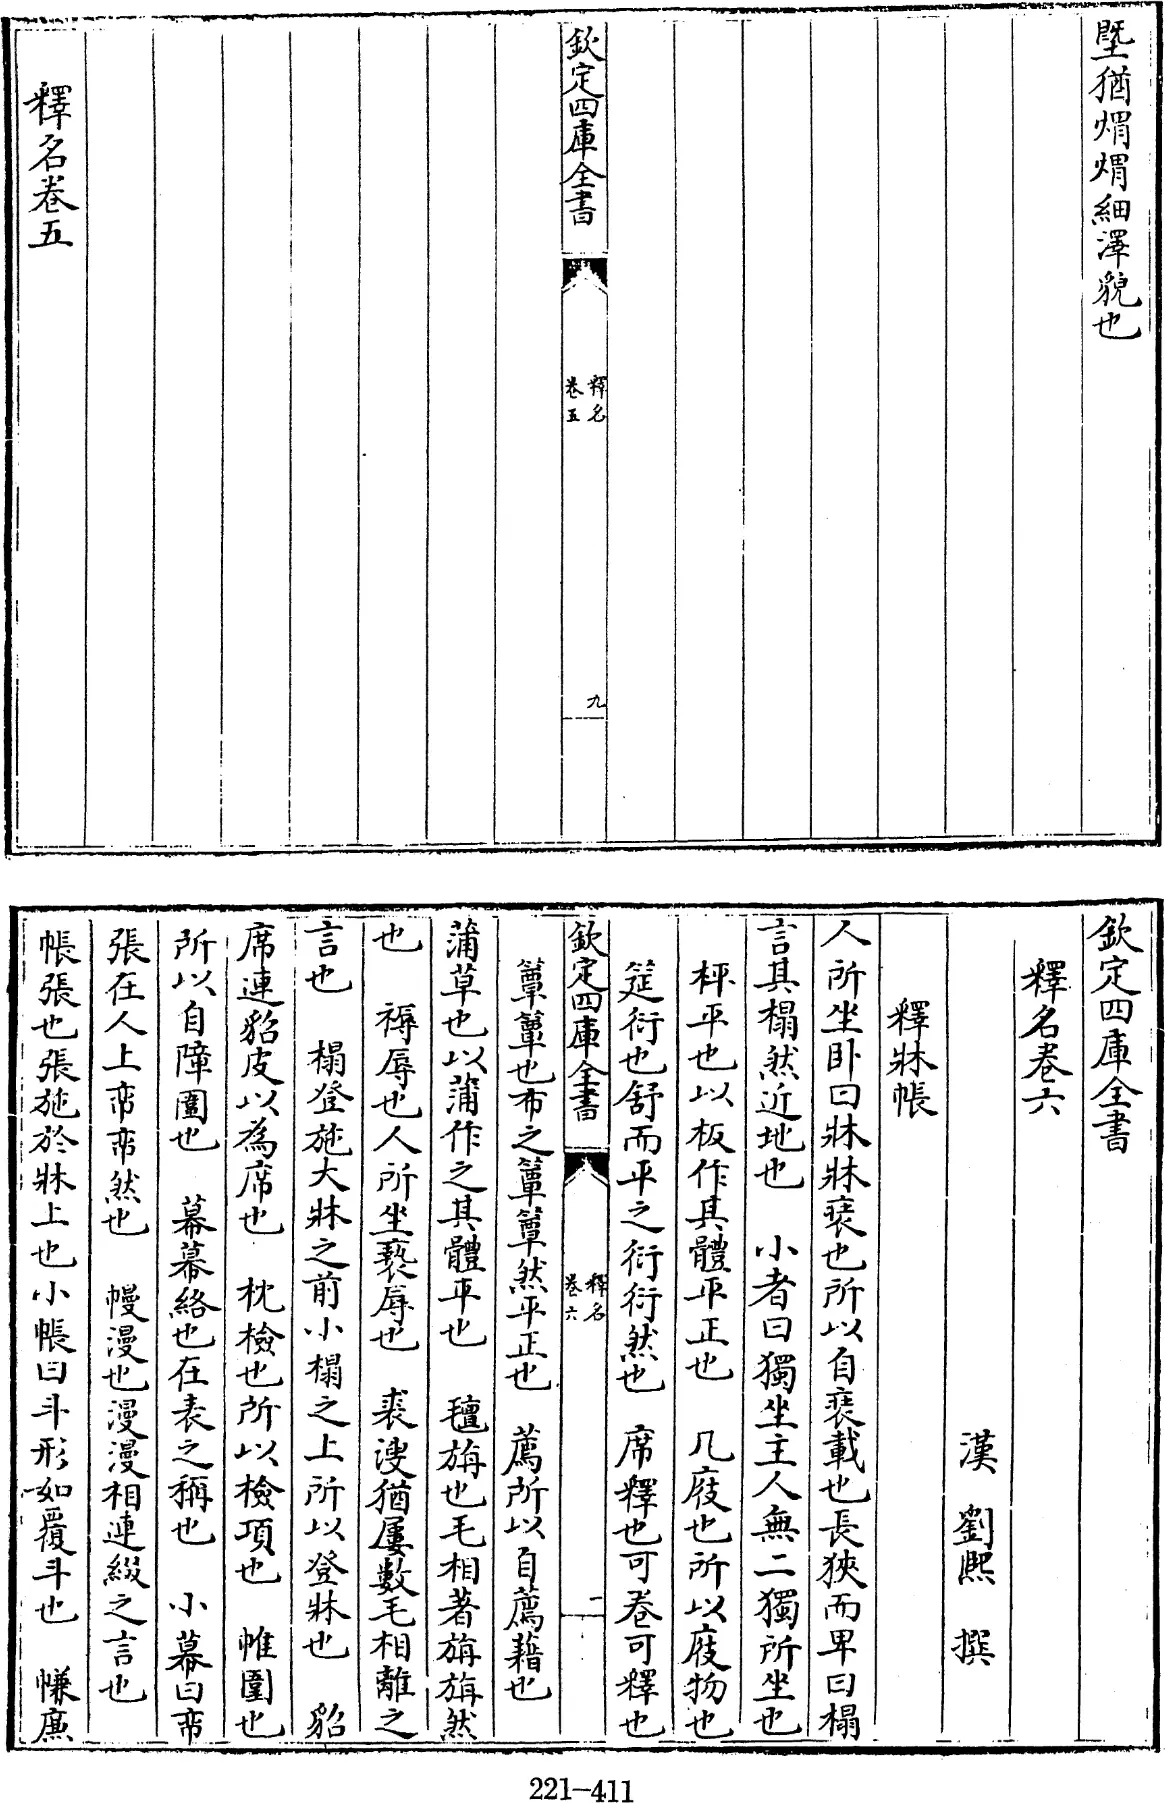 塈猶煟煟細澤貌也
欽定四庫全書
釋名
卷五
九
釋名卷五
欽定四庫全書
釋名卷六
漢 劉熙 撰
釋牀帳
人所坐卧曰牀牀裝也所以自裝載也長狹而卑曰榻
言其榻然近地也 小者曰獨坐主人無二獨所坐也
枰平也以板作其體平正也 几庪也所以庪物也
筵衍也舒而平之衍衍然也 席釋也可卷可釋也
欽定四庫全書
釋名
卷六
一
簟簟也布之簟簟然平正也 薦所以自薦藉也
蒲草也以蒲作之其體平也 氊旃也毛相著旃旃然
也 褥辱也人所坐褻辱也 裘溲猶屢數毛相離之
言也 榻登施大牀之前小榻之上所以登牀也 貂
席連貂皮以為席也 枕檢也所以檢項也 帷圍也
所以自障圍也 幕幕絡也在表之稱也 小幕曰帟
張在人上帟帟然也 幔漫也漫漫相連綴之言也
帳張也張施於牀上也小帳曰斗形如覆斗也 㡘廉
221-411